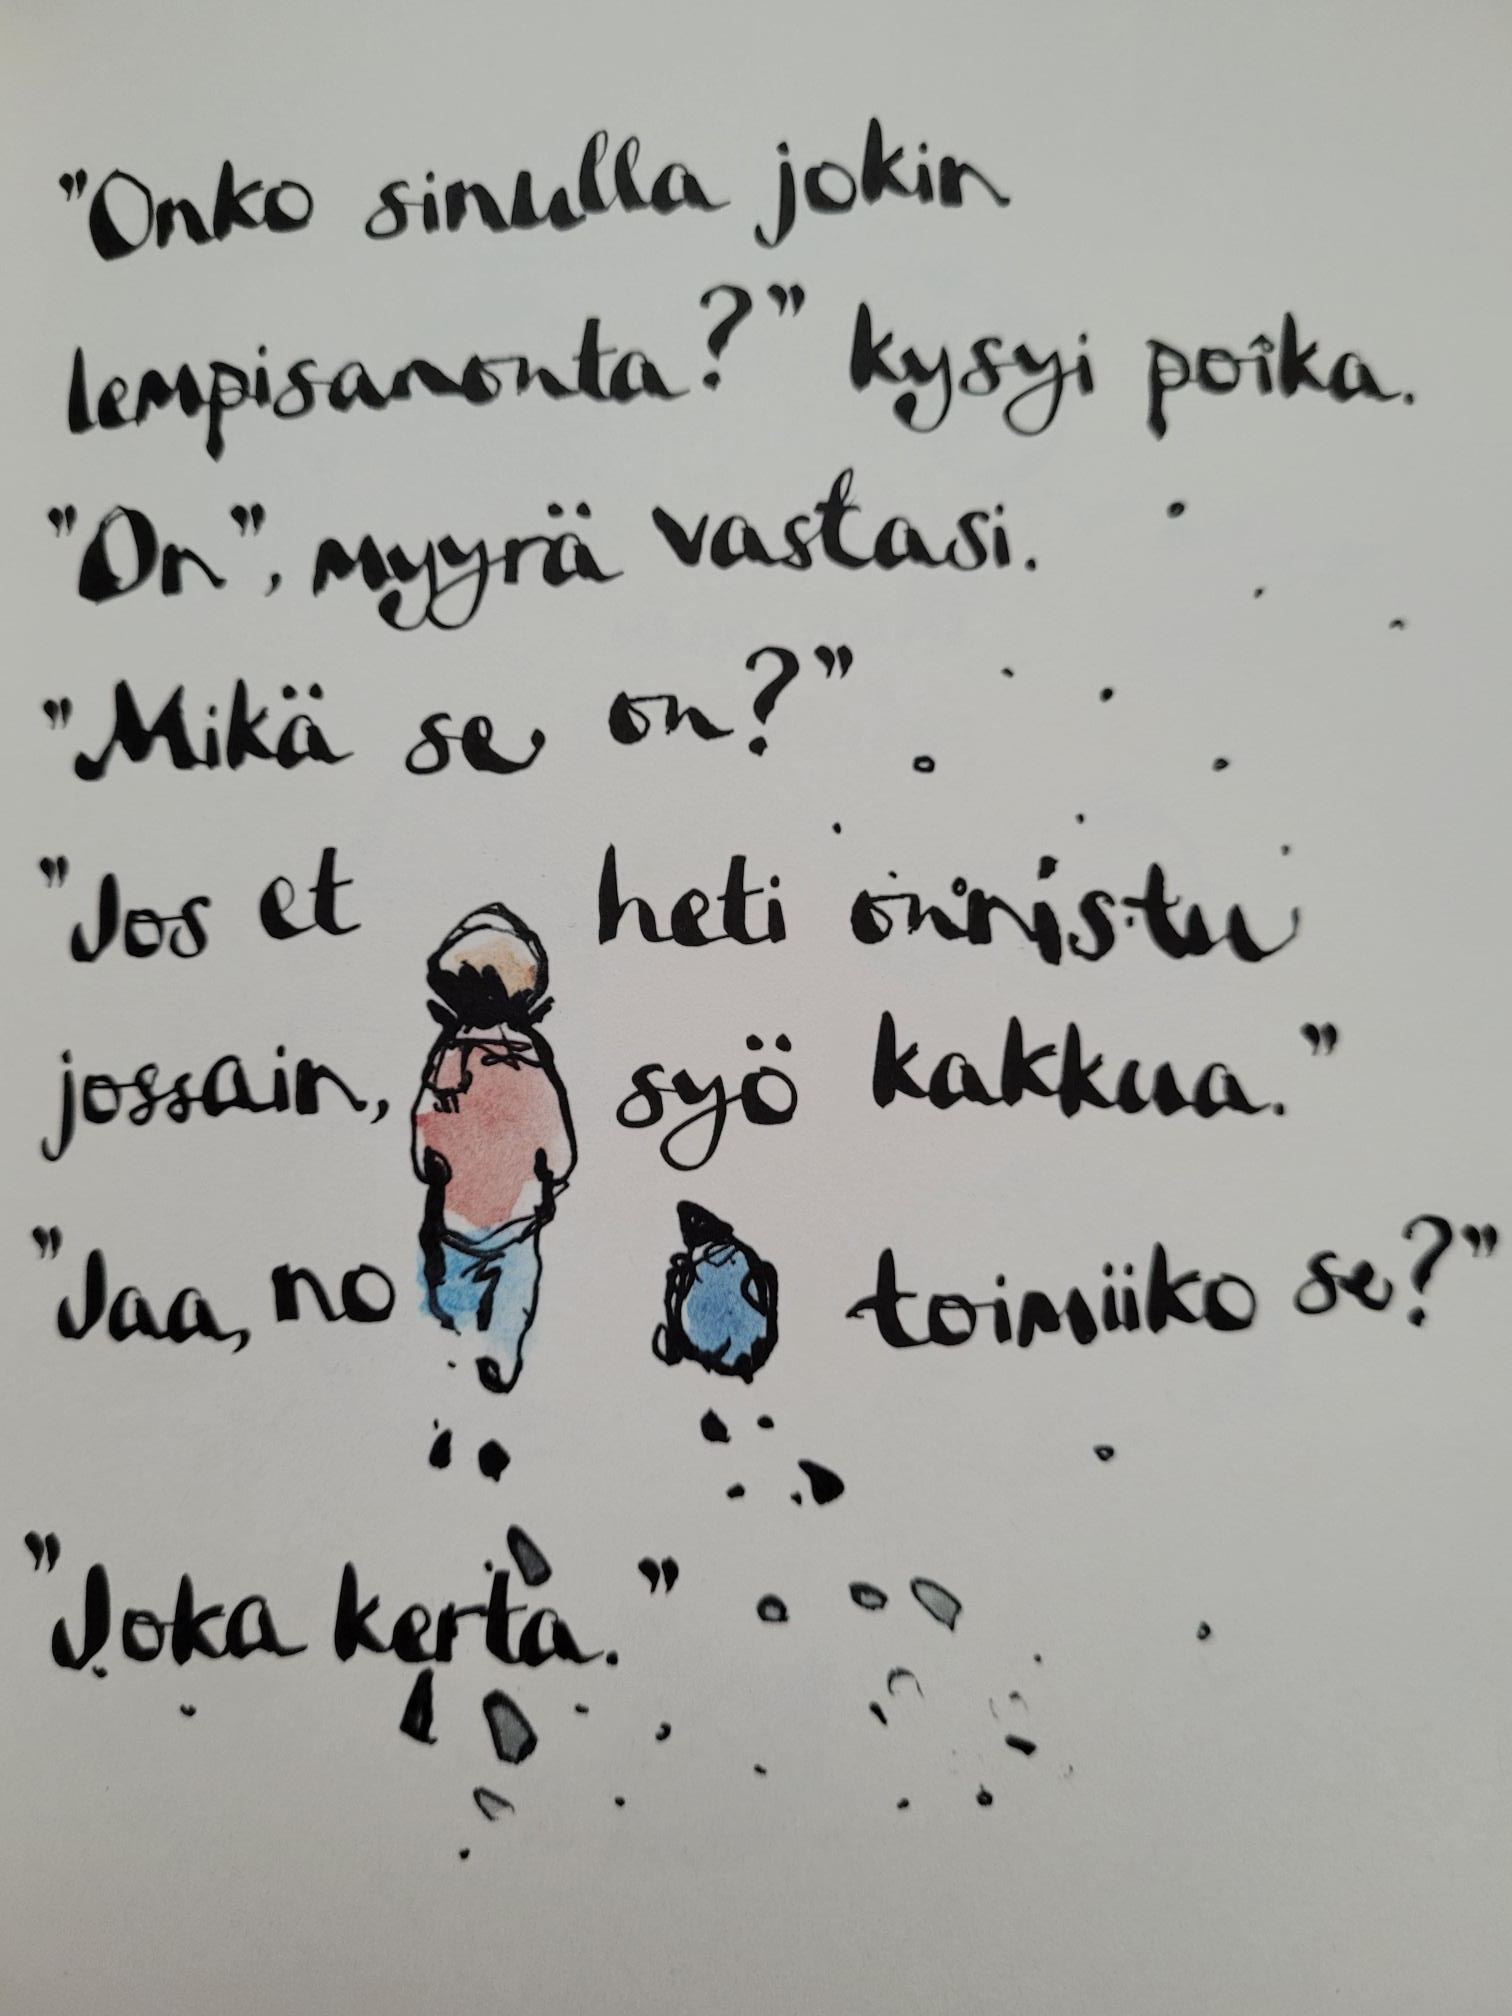 ”Onko sinulla jokin
lempisanonta?” kysyi poika.
”On”, myyrä vastasi.
”Mikä se on?”
”Jos et heti onnistu
jossain, syö kakkua.”
”Jaa, no toimiiko se?”
”Joka kerta.”